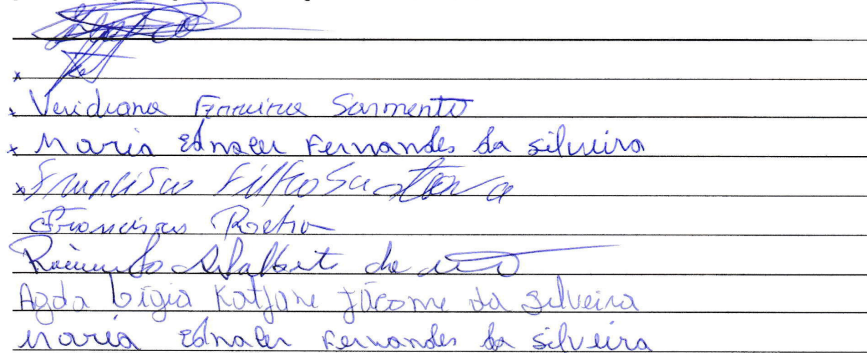 x
x Veridiana Ferreira Sarmento
x Maria Ednaler Fernandes da silveira
x Francisco
Francisco Rocha
Raimundo Adalberto de
Agda Ligia Katjane Jácome da Silveira
Maria Ednaler Fernandes da silveira